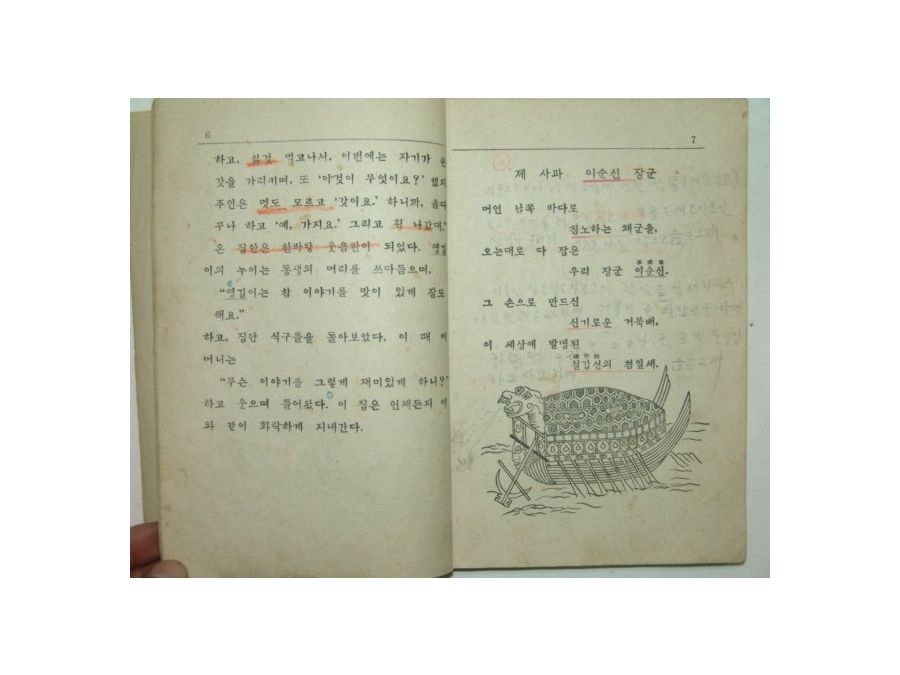 6
하고, 실컷 먹고나서, 이번에는 자기가 쓴
갓을 가리키며, 또 ‘이것이 무엇이요?’ 했지
주인은 멋도 모르고 ‘갓이요.’ 하니까, 옳다
꾸나 하고 ‘예, 가지요.’ 그리고 휙 나갔대.”
온 집안은 한바탕 웃음판이 되었다. 영길
이의 누이는 동생의 머리를 쓰다듬으며,
“영길이는 참 이야기를 맛이 있게 잘도
해요.”
하고, 집안 식구들을 돌아보았다. 이 때 어
머니는
“무슨 이야기를 그렇게 재미있게 하니?”
하고 웃으며 들어왔다. 이 집은 언제든지 이
와 같이 화락하게 지내간다.
7
제 사과 이순신 장군
머언 남쪽 바다로
침노하는 왜군을,
오는대로 다 잡은
우리 장군 이순신.
그 손으로 만드신
신기로운 거북배,
이 세상에 발명된
철갑선의 첨일세.